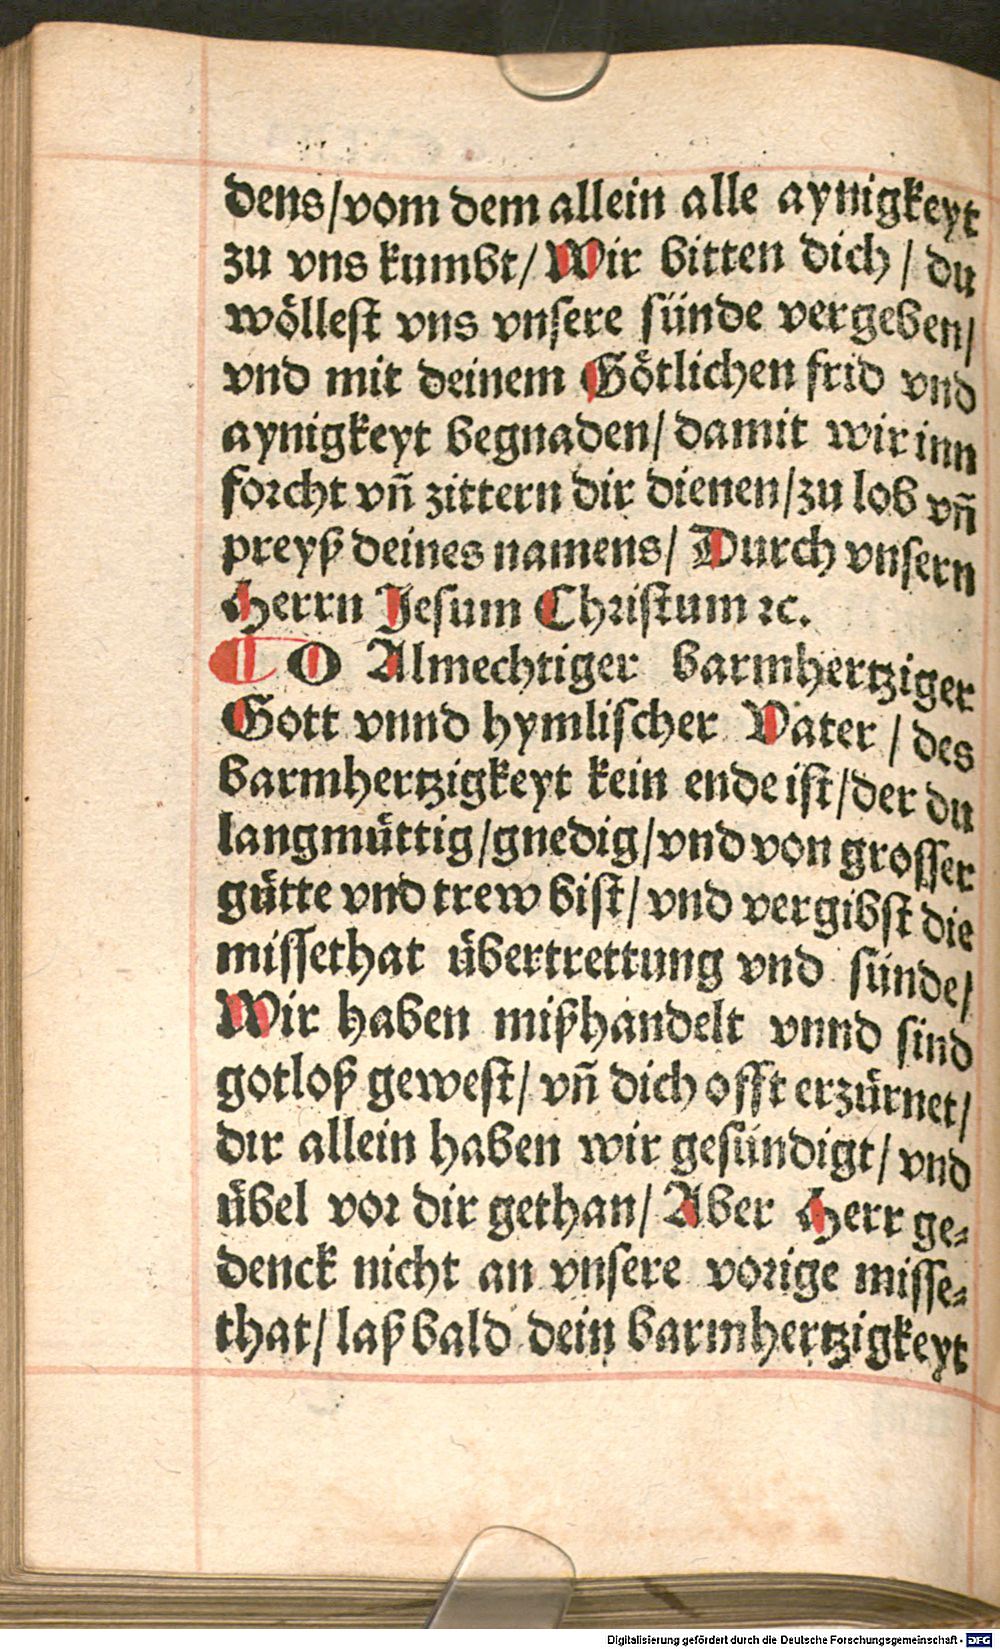 dens/vom dem allein alle aynigkeyt
zu vns kumbt/Wir bitten dich/du
wöllest vns vnsere sünde vergeben/
vnd mit deinem Götlichen frid vnd
aynigkeyt begnaden/damit wir inn
forcht vñ zittern dir dienen/zu lob vñ
preyß deines namens/Durch vnsern
Herrn Jesum Christum ꝛc.
¶ O Almechtiger barmhertziger
Gott vnnd hymlischer Vater/des
barmhertzigkeyt kein ende ist/der du
langmüttig/gnedig/vnd von grosser
gütte vnd trew bist/vnd vergibst die
missethat übertrettung vnd sünde/
Wir haben mißhandelt vnnd sind
gotloß gewest/vñ dich offt erzürnet/
dir allein haben wir gesündigt/vnd
übel vor dir gethan/Aber Herr ge⸗
denck nicht an vnsere vorige misse⸗
that/laß bald dein barmhertzigkeyt
Digitalisierung gefördert durch die Deutsche Forschungsgemeinschaft - DFG